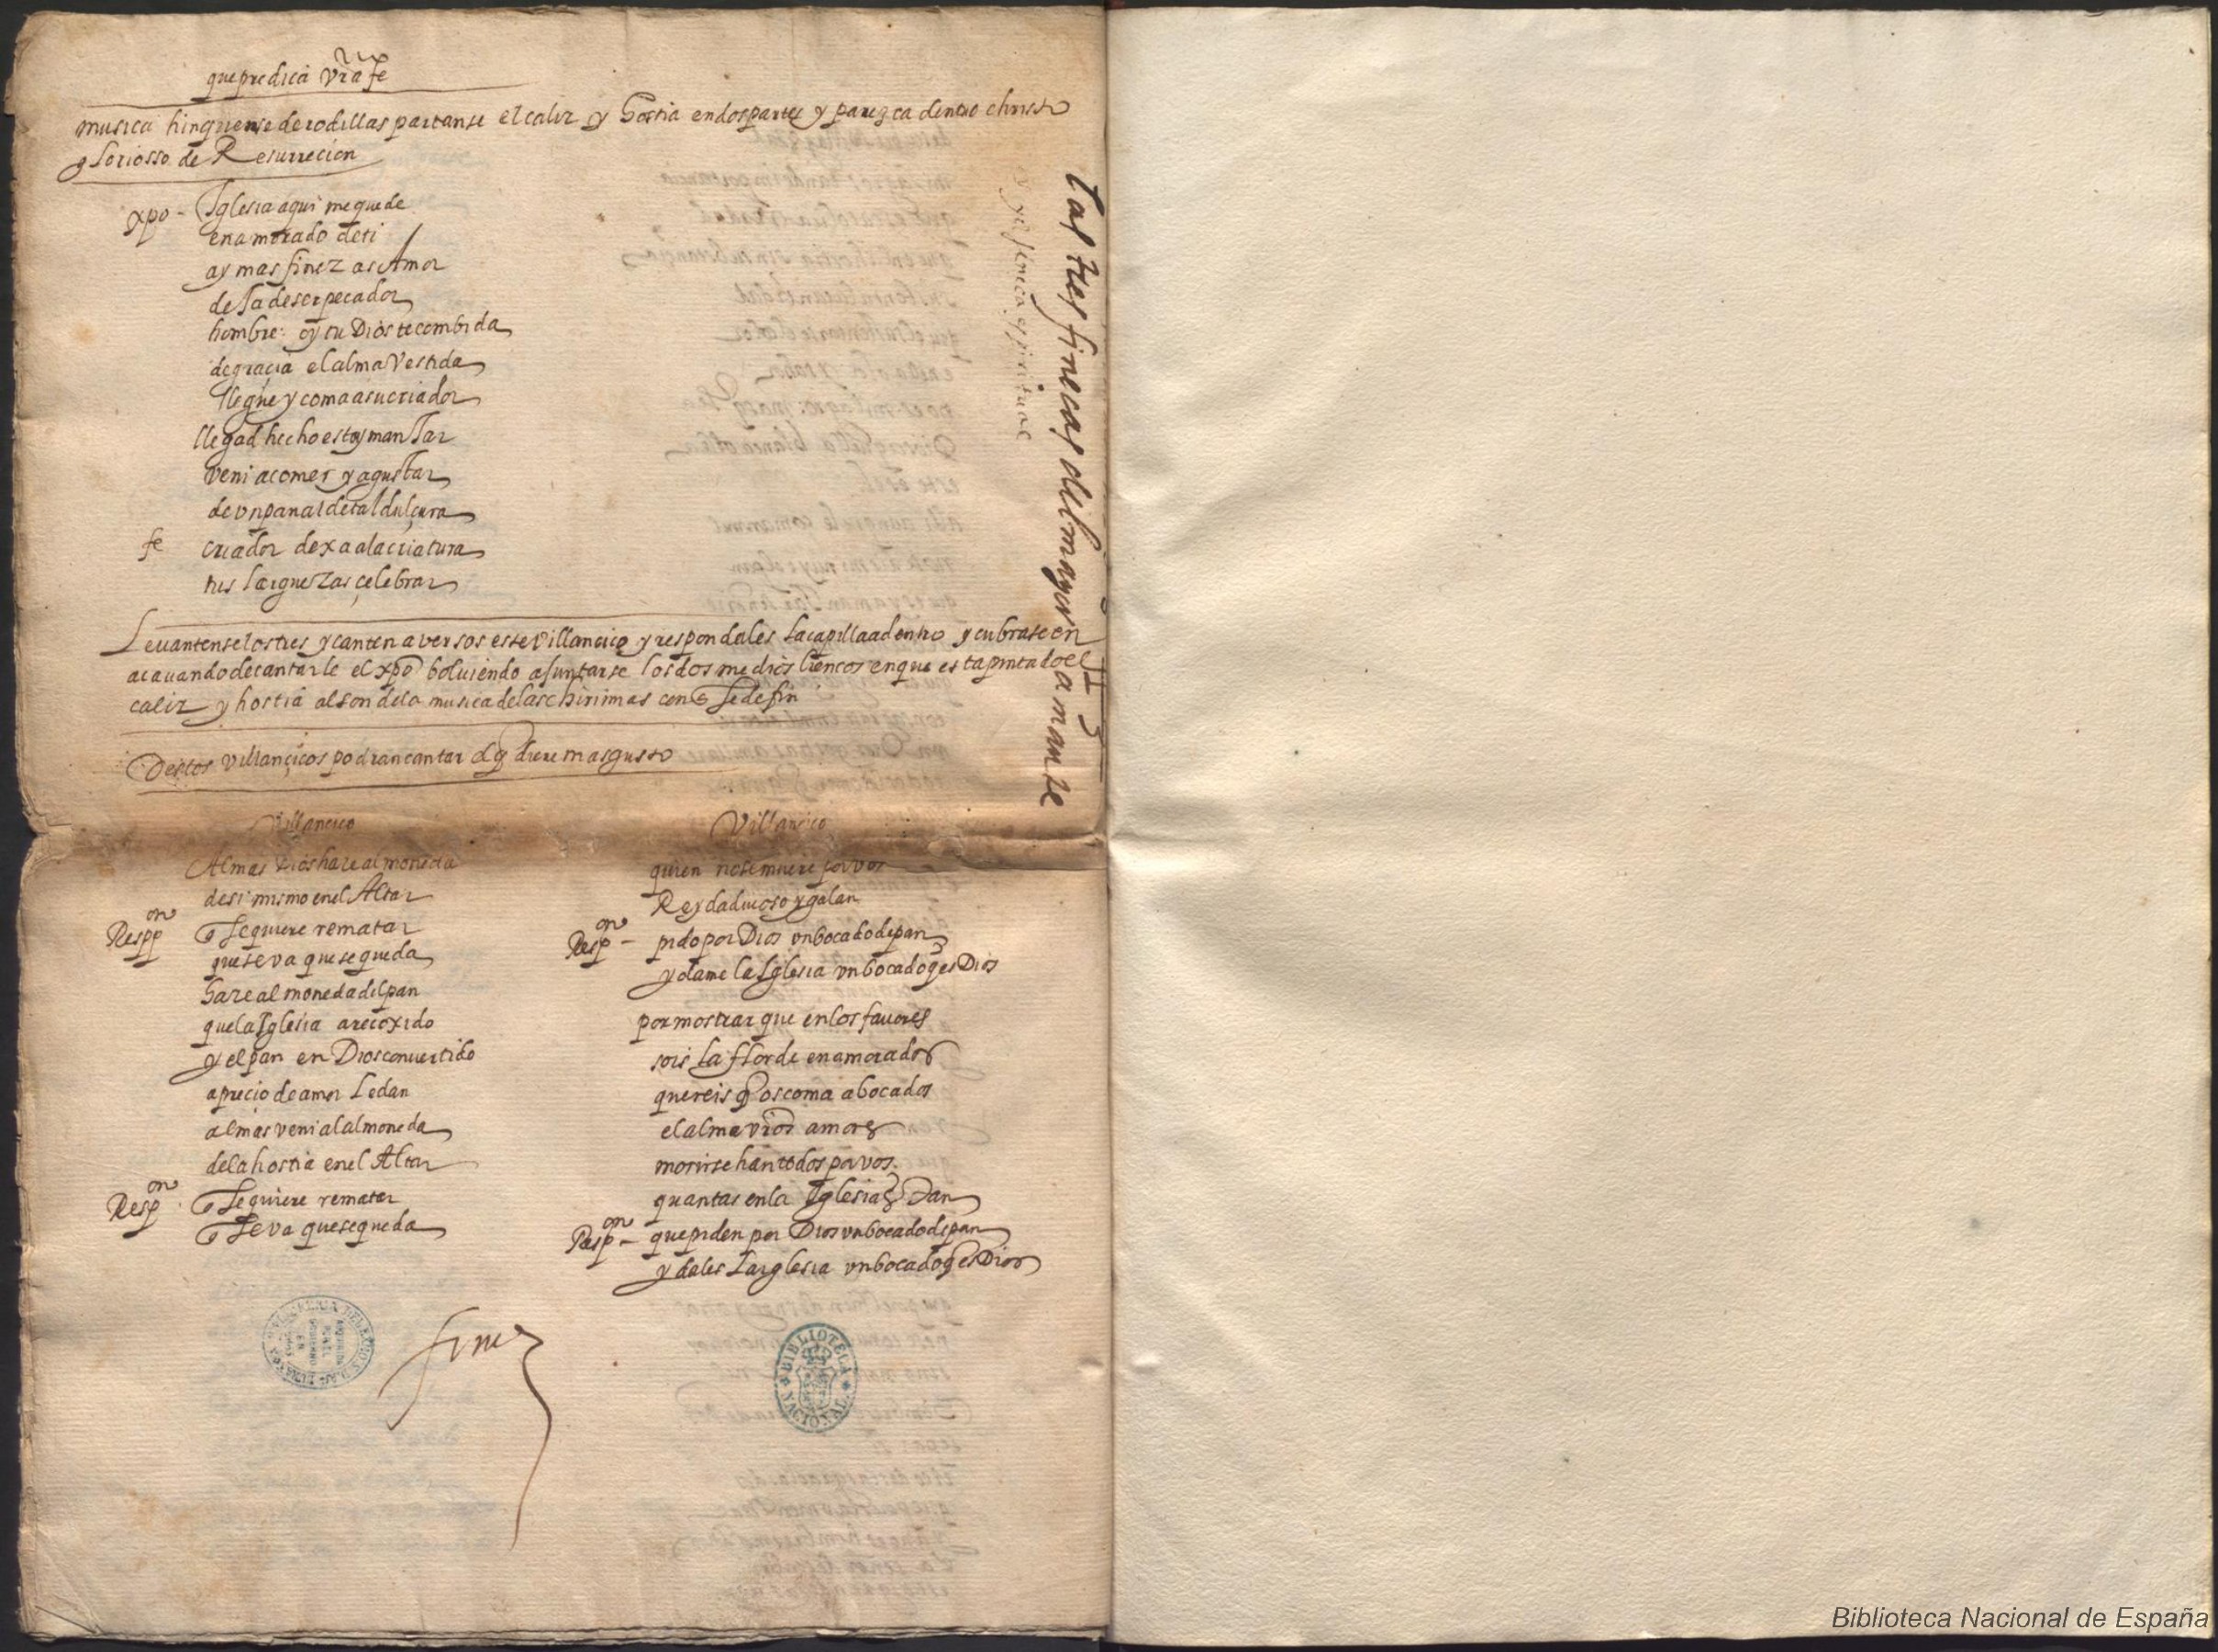 que predica vr̃a fe
musica hinquense de rodillas partanse el caliz y hostia en dos partes y parezca dentro christo
gloriosso de Resurreción
xpo - Iglesia aqui me quede
enamorado de ti
ay mas finezas Amor
hombre oy tu Dios te combida
de gracia el alma vestida
llegue y coma a su criador
llegad hecho estoy manJar
veni a comer y a gustar
de vn panal de tal dulçura
fe criador dexa a la criatura
tus larguezas çelebrar
Leuantense los tres y canten a versos este villancico y respondales la capilla adentro y cubrase en
acauando de cantarle el xpo boluiendo a Juntarse los dos medios liencos en que esta pintado el
caliz y hostia al son de la musica de las chirimias con q̃ se de fin
Destos villançicos podran cantar el q̃ diere mas gusto
Villancico
Almas Dios haze almoneda
de si mismo en el Altar
Respon q̃ se quiere rematar
que se va que se queda
haze almoneda del pan
que la Iglesia a recoxido
y el pan en Dios conuertido
a precio de amor le dan
almas veni al almoneda
de la hostia en el Altar
Respon q̃ se quiere rematar
q̃ se va que se queda
Villancico
quien no se muere por vos
Rey dadiuoso y galan
Respon - pido por Dios vn bocado de pan
y dame la Iglesia vn bocado q̃ es Dios
por mostrar que en los fauores
sois la flor de enamorados
quereis q̃ os coma a bocados
el alma vr̃os amores
morirse han todos por vos
quantas en la Iglesia
Respon - que piden por Dios vn bocado de pan
y dales la iglesia vn bocado q̃ es Dios
fine
BIBLIOTECA NACIONAL
las tres finecas del mayor amante
Biblioteca Nacional de España